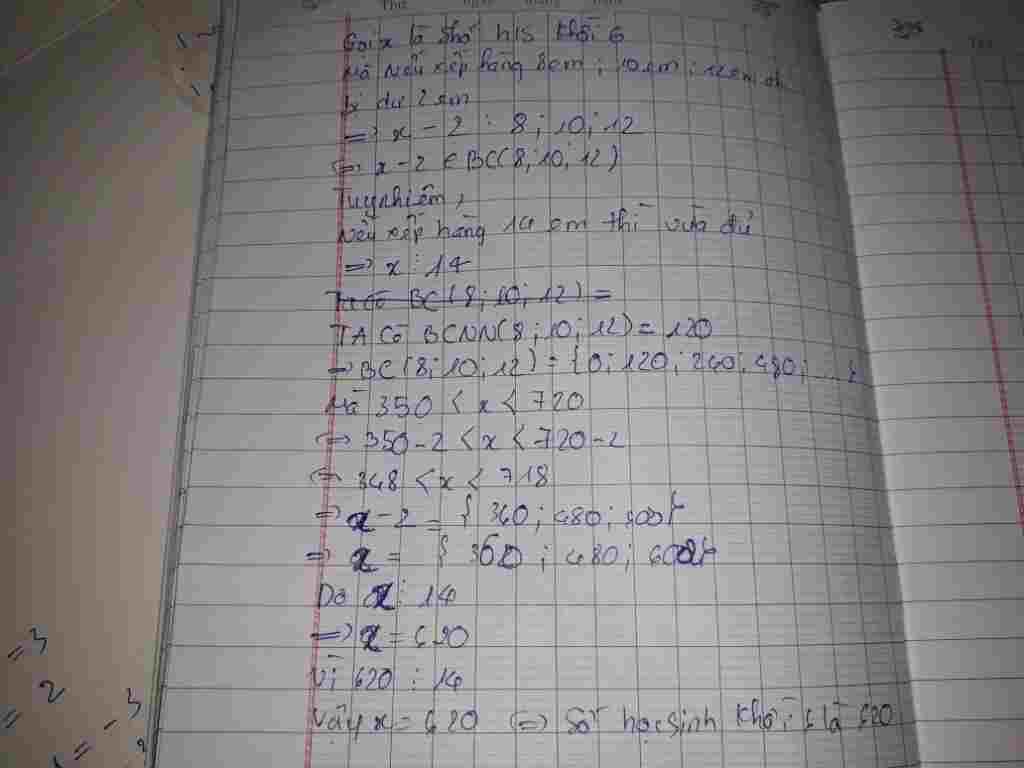 Gọi x là số h/s khối 6
Mà nếu xếp hàng 8em; 10em; 12em
bị dư 2 em
=> x - 2 ⋮ 8; 10; 12
<=> x - 2 ∈ BC(8; 10; 12)
Tuy nhiêm,
Nếu xếp hàng 14 em thì vừa đủ
=> x ⋮ 14
Ta có BC(8; 10; 12) =
TA Có BCNN(8; 10; 12) = 120
=> BC(8; 10; 12) = {0; 120; 240; 480; ... }
Mà 350 < x < 720
<=> 350-2 < x < 720-2
<=> 348 < x < 718
=> x - 2 = { 360; 480; }
=> x = { ; 480; }
Do x ⋮ 14
=> x =
Vì 620 ⋮ 14
Vậy x = <=> Số học sinh khối 6 là